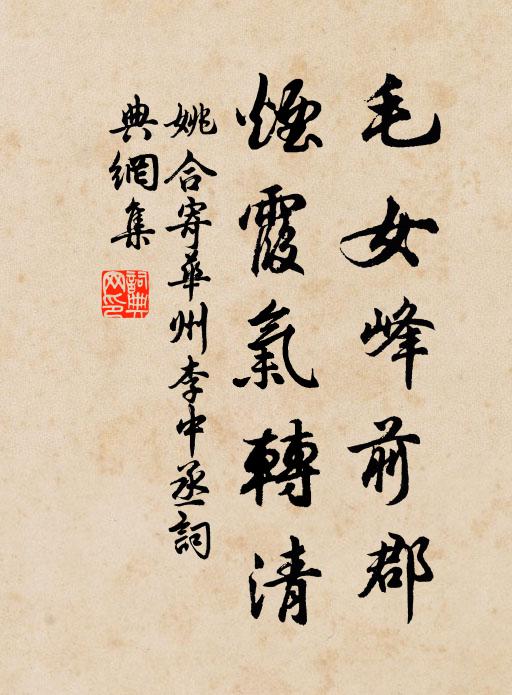 毛女峰前郡
煙霞氣轉清
姚合寄華州李中丞詞
典網集
詞典网印